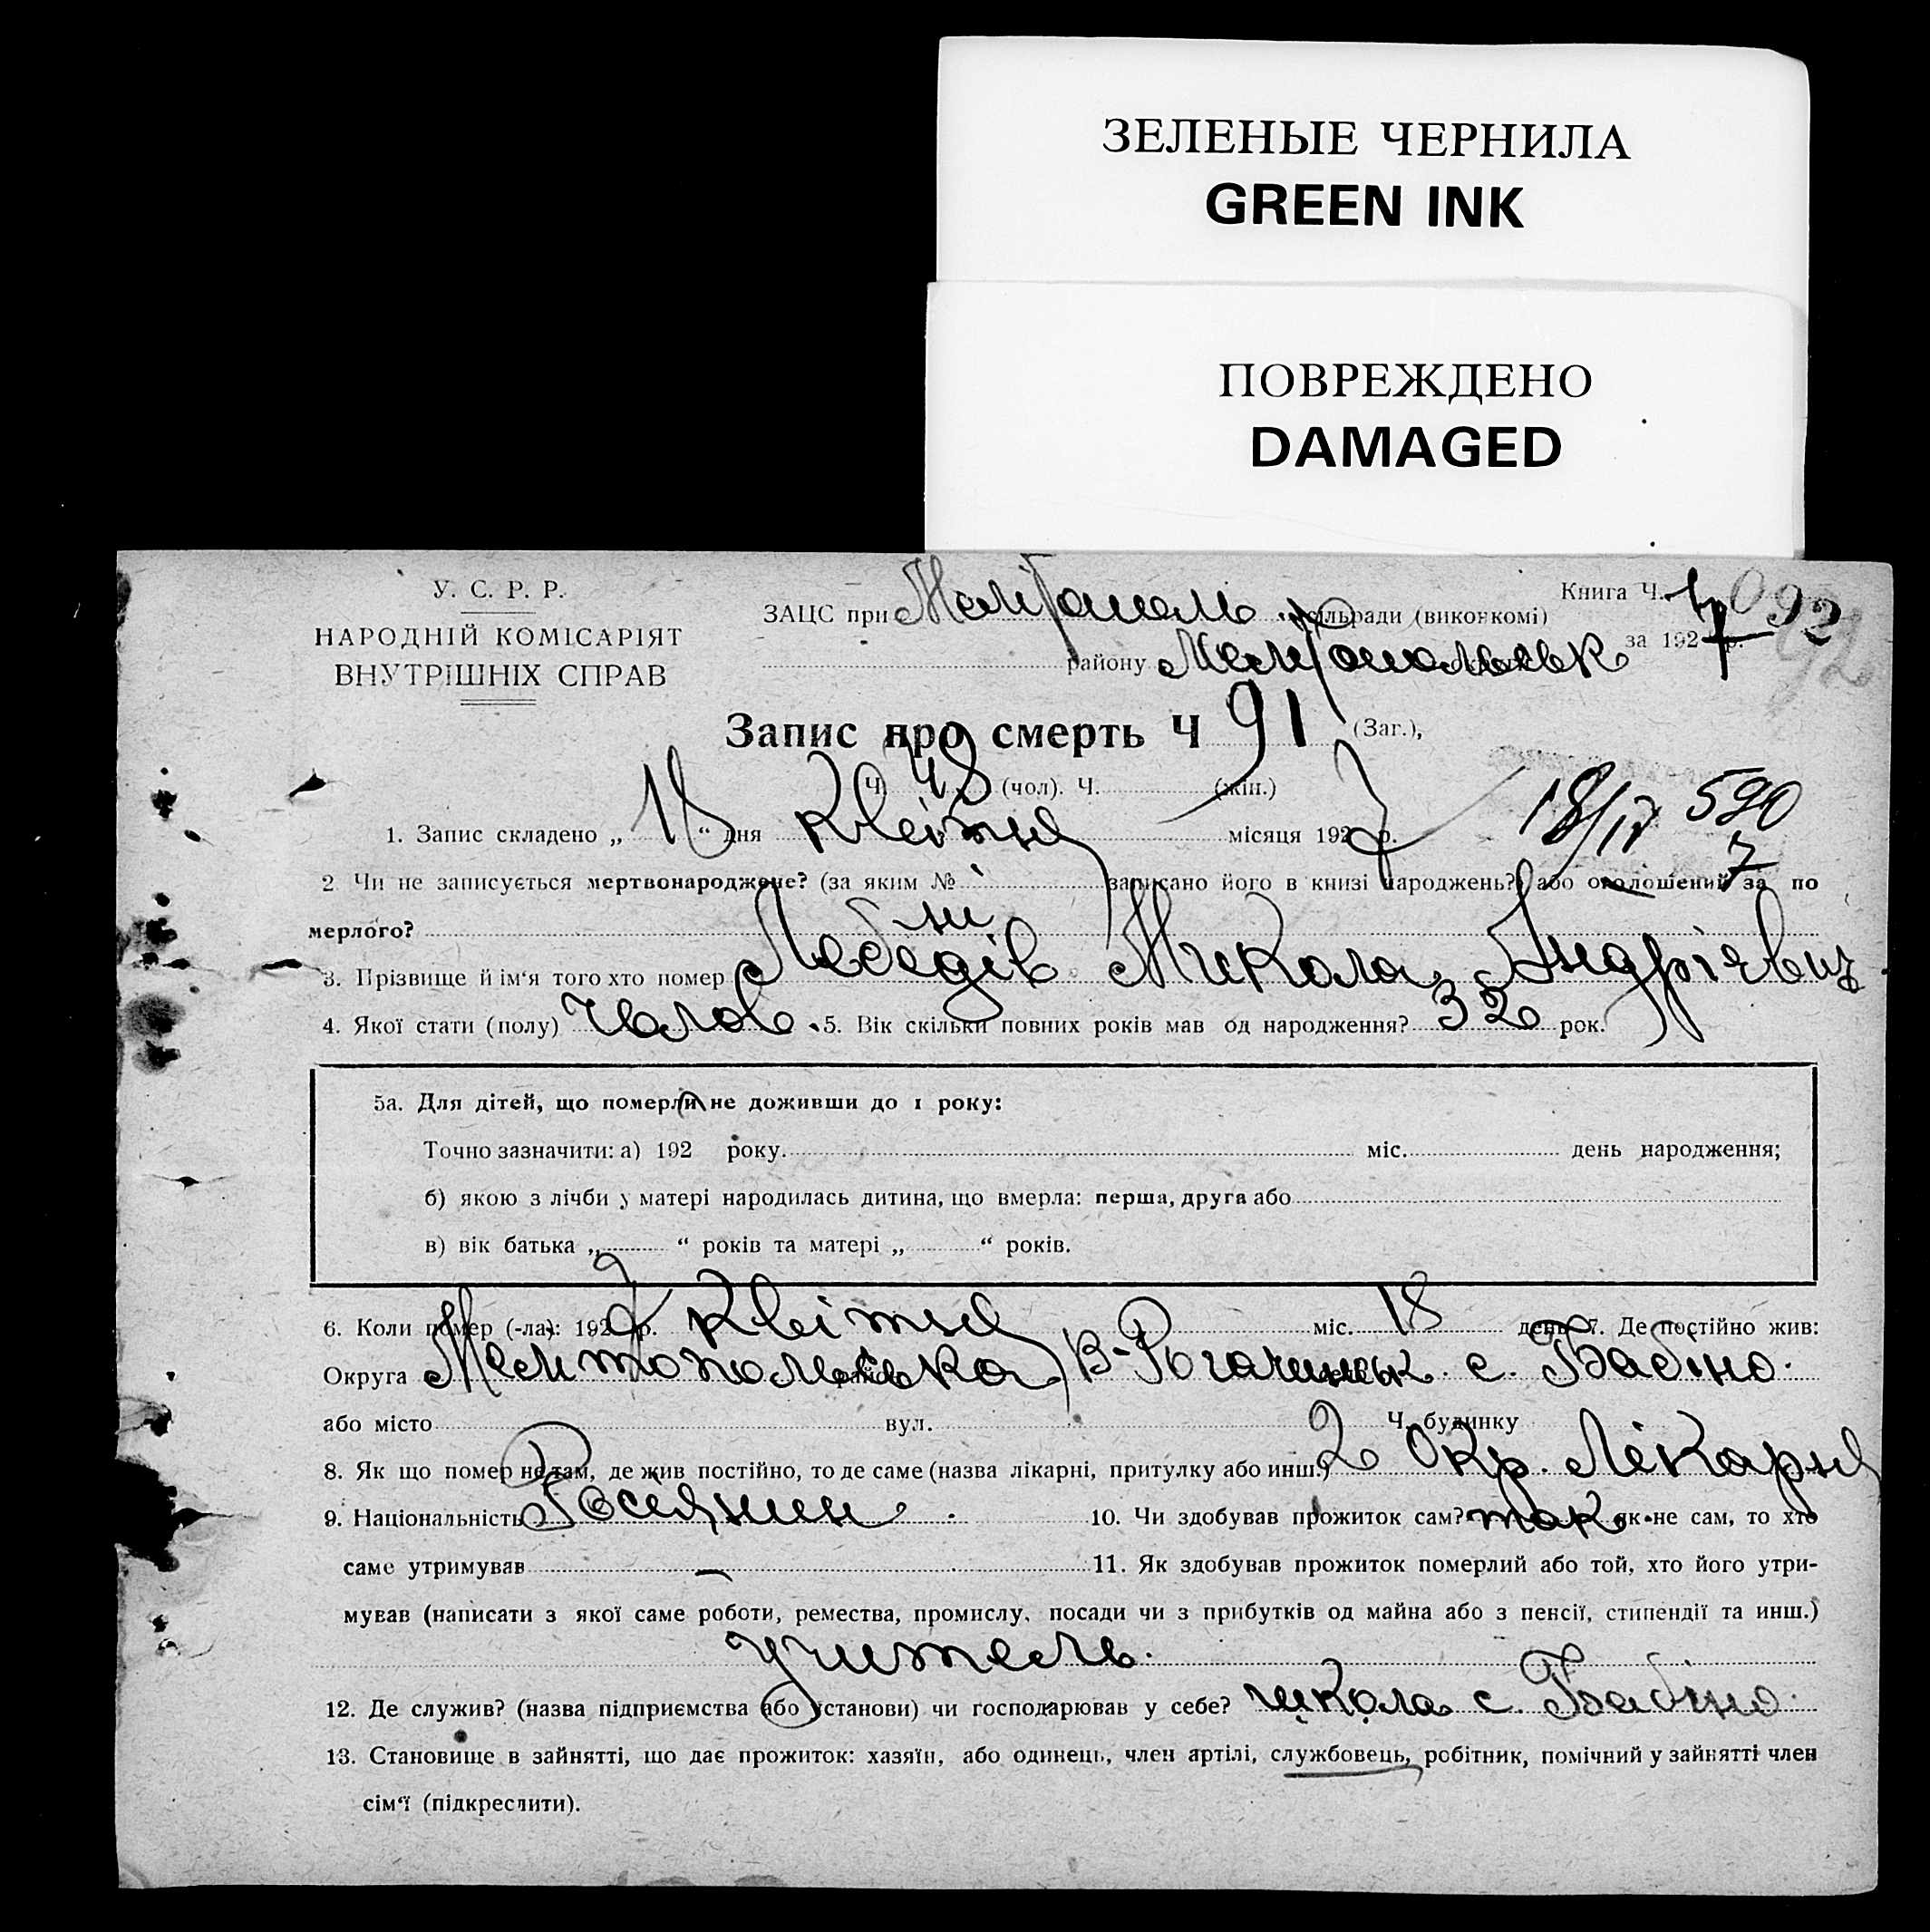 ЗЕЛЕНЫЕ ЧЕРНИЛА
GREEN INK
ПОВРЕЖДЕНО
DAMAGED
У. С. Р. Р.
НАРОДНІЙ КОМІСАРІЯТ
ВНУТРІШНІХ СПРАВ
ЗАЦС при сільради (виконкомі)
району
Книга Ч.
92
за 1927 р.
Запис про смерть Ч 91 (Заг.),
Ч. 48 (чол). Ч. (жін.)
1. Запис складено „ 18 “ дня квітня місяця 1927 р.
18/IV 520
7
2 Чи не записується мертвонароджене? (за яким № записано його в книзі народжень?) або оголошений за по
мерлого? ні
3. Прізвище й ім'я того хто помер Лебедів Микола Андрієвич
4. Якої стати (полу) чолов. 5. Вік скільки повних років мав од народження? 32 рок.
5а. Для дітей, що померли не доживши до 1 року:
Точно зазначити: а) 192 року. міс. день народження;
б) якою з лічби у матері народилась дитина, що вмерла: перша, друга або
в) вік батька „ “ років та матері „ “ років.
6. Коли помер (-ла): 1927 р. квітня міс. 18 день 7. Де постійно жив:
Округа Мелитопольська В-Рогачинськ с. Бабіно.
або місто вул. Ч. будинку
8. Як що помер не там, де жив постійно, то де саме (назва лікарні, притулку або инш.) 2 Окр. Лікарня
9. Національність Росіянин. 10. Чи здобував прожиток сам? так як не сам, то хто
саме утримував — 11. Як здобував прожиток померлий або той, хто його утри-
мував (написати з якої саме роботи, ремества, промислу, посади чи з прибутків од майна або з пенсії, стипендії та инш.)
учитель.
12. Де служив? (назва підприємства або установи) чи господарював у себе? школа с. Бабіно.
13. Становище в зайнятті, що дає прожиток: хазяїн, або одинець, член артілі, службовець, робітник, помічний у зайнятті член
сім'ї (підкреслити).